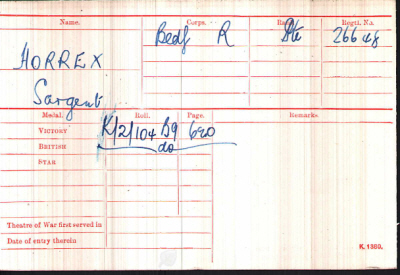 Name. Corps. Rank. Regtl. No.
Bedf R Pte 26648
HORREX
Sargent
Medal. Roll. Page. Remarks.
VICTORY K/2/104 B9 620
BRITISH do
STAR
Theatre of War first served in
Date of entry therein
K. 1380.